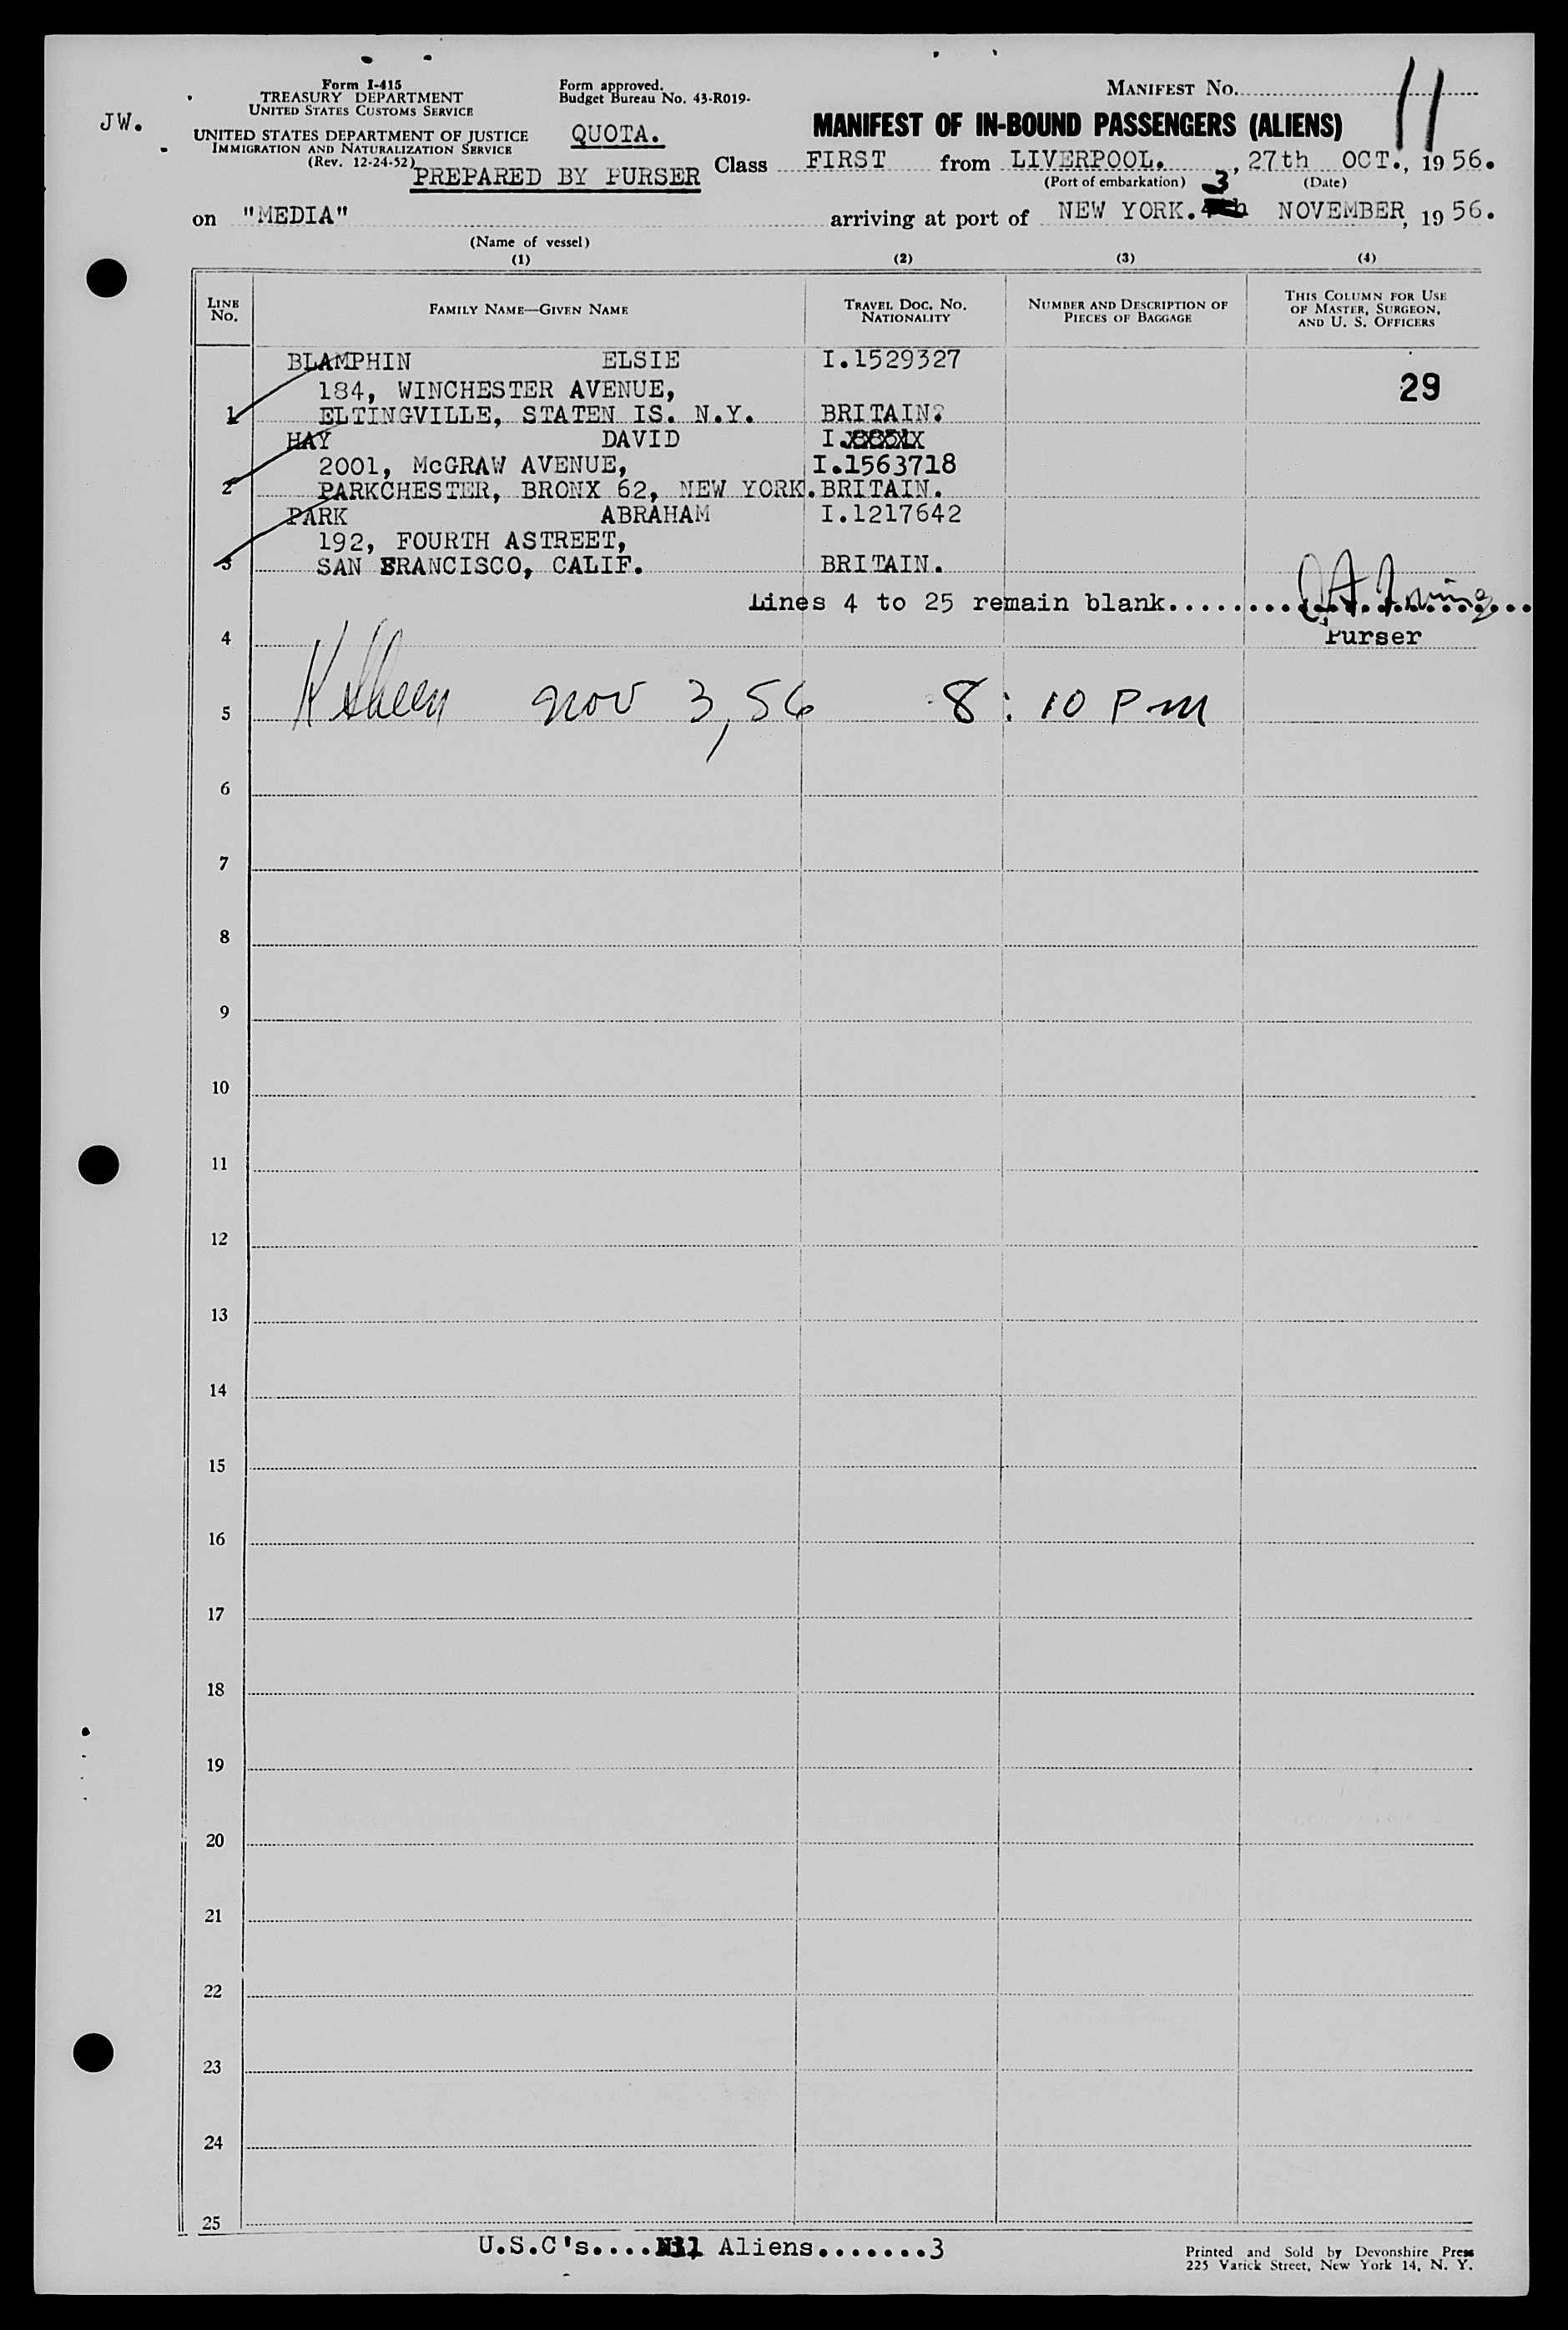 JW.
Form I-415
TREASURY DEPARTMENT
UNITED STATES CUSTOMS SERVICE
UNITED STATES DEPARTMENT OF JUSTICE
IMMIGRATION AND NATURALIZATION SERVICE
(Rev. 12-24-52)
Form approved.
Budget Bureau No. 43-R019-
QUOTA.
PREPARED BY PURSER
MANIFEST NO. 11
MANIFEST OF IN-BOUND PASSENGERS (ALIENS)
Class FIRST from LIVERPOOL. , 27th OCT., 1956.
(Port of embarkation) (Date)
on "MEDIA" arriving at port of NEW YORK. 3 NOVEMBER, 1956.
(Name of vessel)
(1) (2) (3) (4)
LINE NO.
FAMILY NAME—GIVEN NAME
TRAVEL DOC. NO. NATIONALITY
NUMBER AND DESCRIPTION OF PIECES OF BAGGAGE
THIS COLUMN FOR USE OF MASTER, SURGEON, AND U. S. OFFICERS
BLAMPHIN ELSIE I.1529327
184, WINCHESTER AVENUE, 29
1 ELTINGVILLE, STATEN IS. N.Y. BRITAIN.
HAY DAVID I.
2001, McGRAW AVENUE, I.1563718
2 PARKCHESTER, BRONX 62, NEW YORK. BRITAIN.
PARK ABRAHAM I.1217642
192, FOURTH ASTREET,
3 SAN FRANCISCO, CALIF. BRITAIN.
Lines 4 to 25 remain blank..........
4 Purser
5 Nov 3, 56 8:10 PM
6
7
8
9
10
11
12
13
14
15
16
17
18
19
20
21
22
23
24
25
U.S.C's....Nil Aliens.......3
Printed and Sold by Devonshire Press
225 Varick Street, New York 14, N. Y.